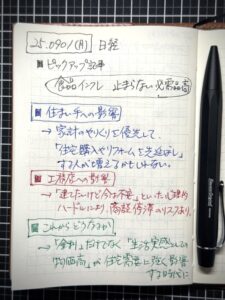 25.0901(月) 日経
■ピックアップ記事
食品インフレ 止まらない
■住まい手への影響
→ 家計のやりくりを優先して、
「住宅購入やリフォームを先延ばし」
する人が増えるかもしれない。
■工務店への影響
→「建てたいけど今は不安」といった心理的
ハードルにより、商談停滞のリスクあり。
■これからどうなるか
→「金利」だけでなく「生活実感としての
物価高」が住宅需要に強く影響
する時代に